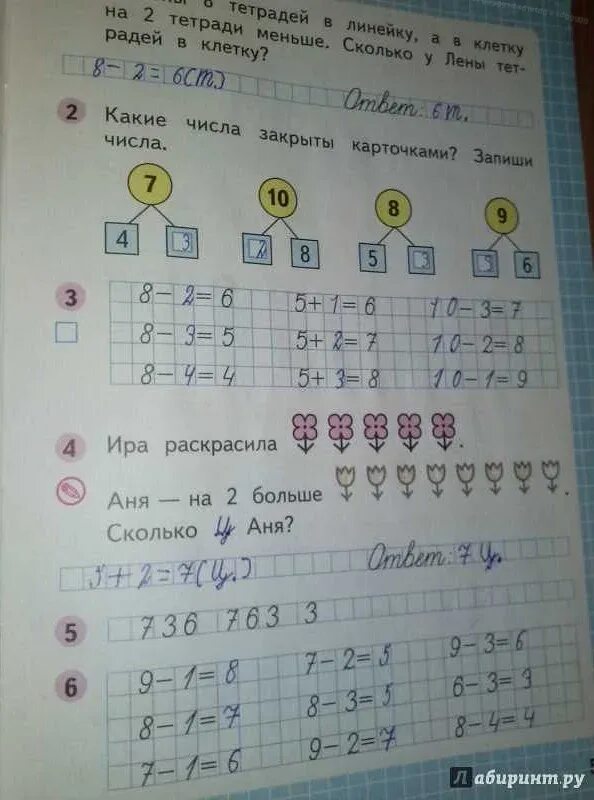 тетрадей в линейку, а в клетку
на 2 тетради меньше. Сколько у Лены тет-
радей в клетку?
8 - 2 = 6 (т.)
Ответ: 6 т.
2 Какие числа закрыты карточками? Запиши
числа.
7 10 8 9
4 3 2 8 5 3 3 6
3 8 - 2 = 6 5 + 1 = 6 10 - 3 = 7
8 - 3 = 5 5 + 2 = 7 10 - 2 = 8
8 - 4 = 4 5 + 3 = 8 10 - 1 = 9
4 Ира раскрасила .
Аня — на 2 больше .
Сколько ц Аня?
5 + 2 = 7 (ц.) Ответ: 7 ц.
5 736 763 3
6 9 - 1 = 8 7 - 2 = 5 9 - 3 = 6
8 - 1 = 7 8 - 3 = 5 6 - 3 = 3
7 - 1 = 6 9 - 2 = 7 8 - 4 = 4
Лабиринт.ру